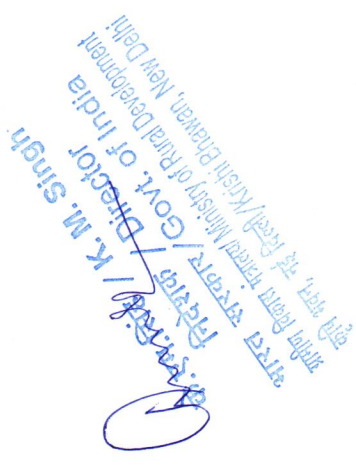 के. एम. सिंह / K. M. Singh
निदेशक / Director
भारत सरकार / Govt. of India
ग्रामीण विकास मंत्रालय / Ministry of Rural Development
कृषि भवन, नई दिल्ली / Krishi Bhawan, New Delhi